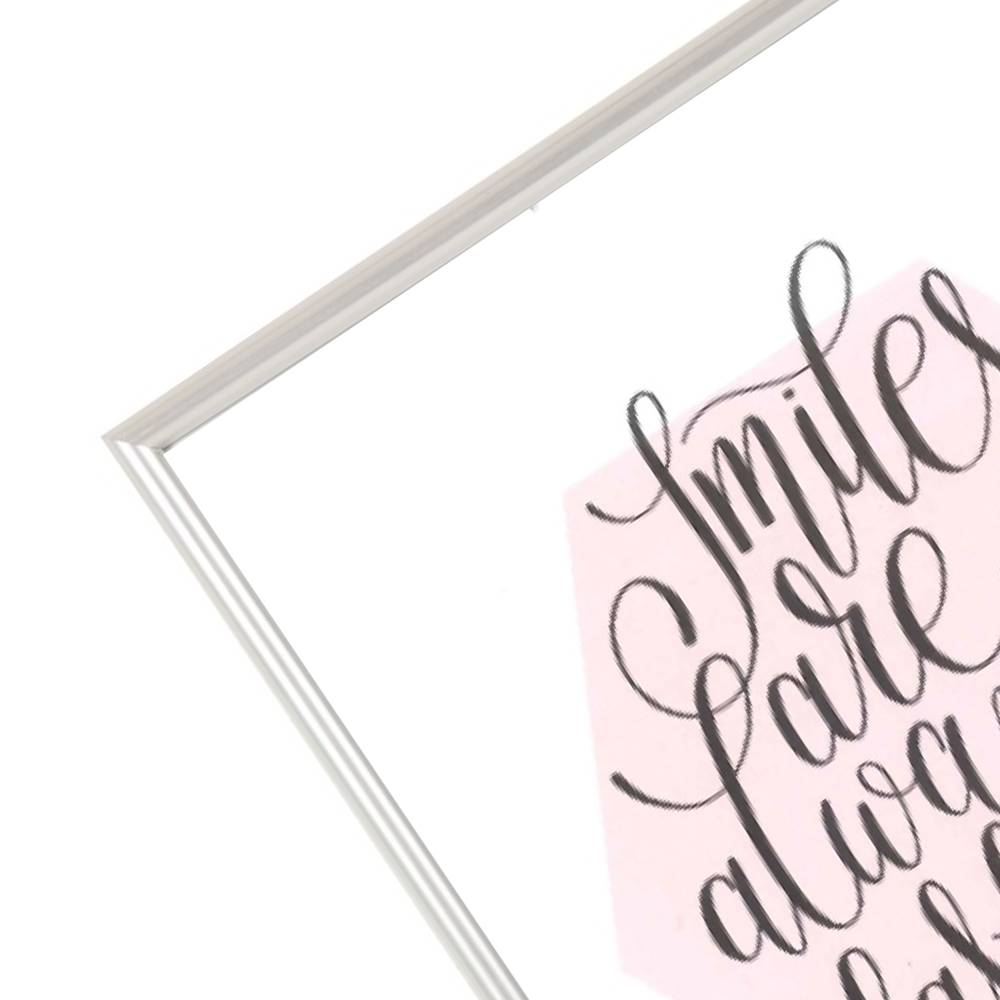 Smiles
are
always